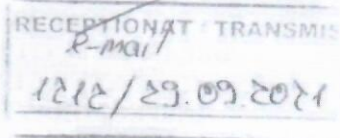 RECEPTIONAT TRANSMIS
e-mail
1212/29.09.2021